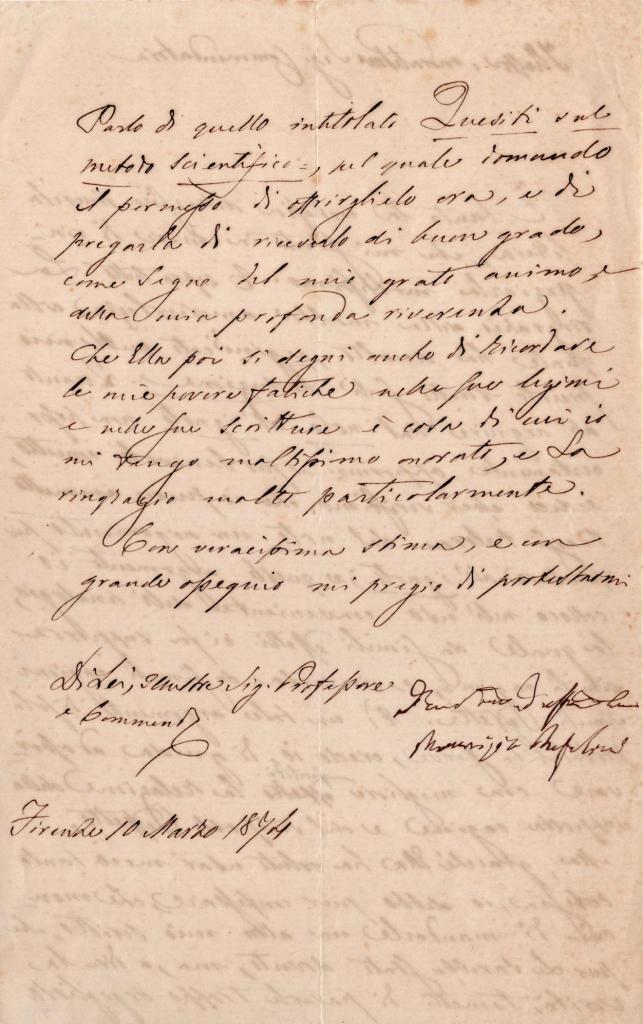 Parlo di quello intitolato Quesiti sul
metodo scientifico=, pel quale domando
il permesso di offrirglielo ora, e di
pregarla di riceverlo di buon grado,
come segno del mio grato animo, e
della mia profonda riverenza.
Che Ella poi si degni anche di ricordare
le mie povere fatiche nelle sue lezioni
e nelle sue scritture è cosa di cui io
mi tengo moltissimo onorato, e La
ringrazio molto particolarmente.
Con veracissima stima, e con
grande ossequio mi pregio di protestarmi
Di Lei, Illustre Sig. Professore
e Commend
Maurizio Bufalini
Firenze 10 Marzo 1874